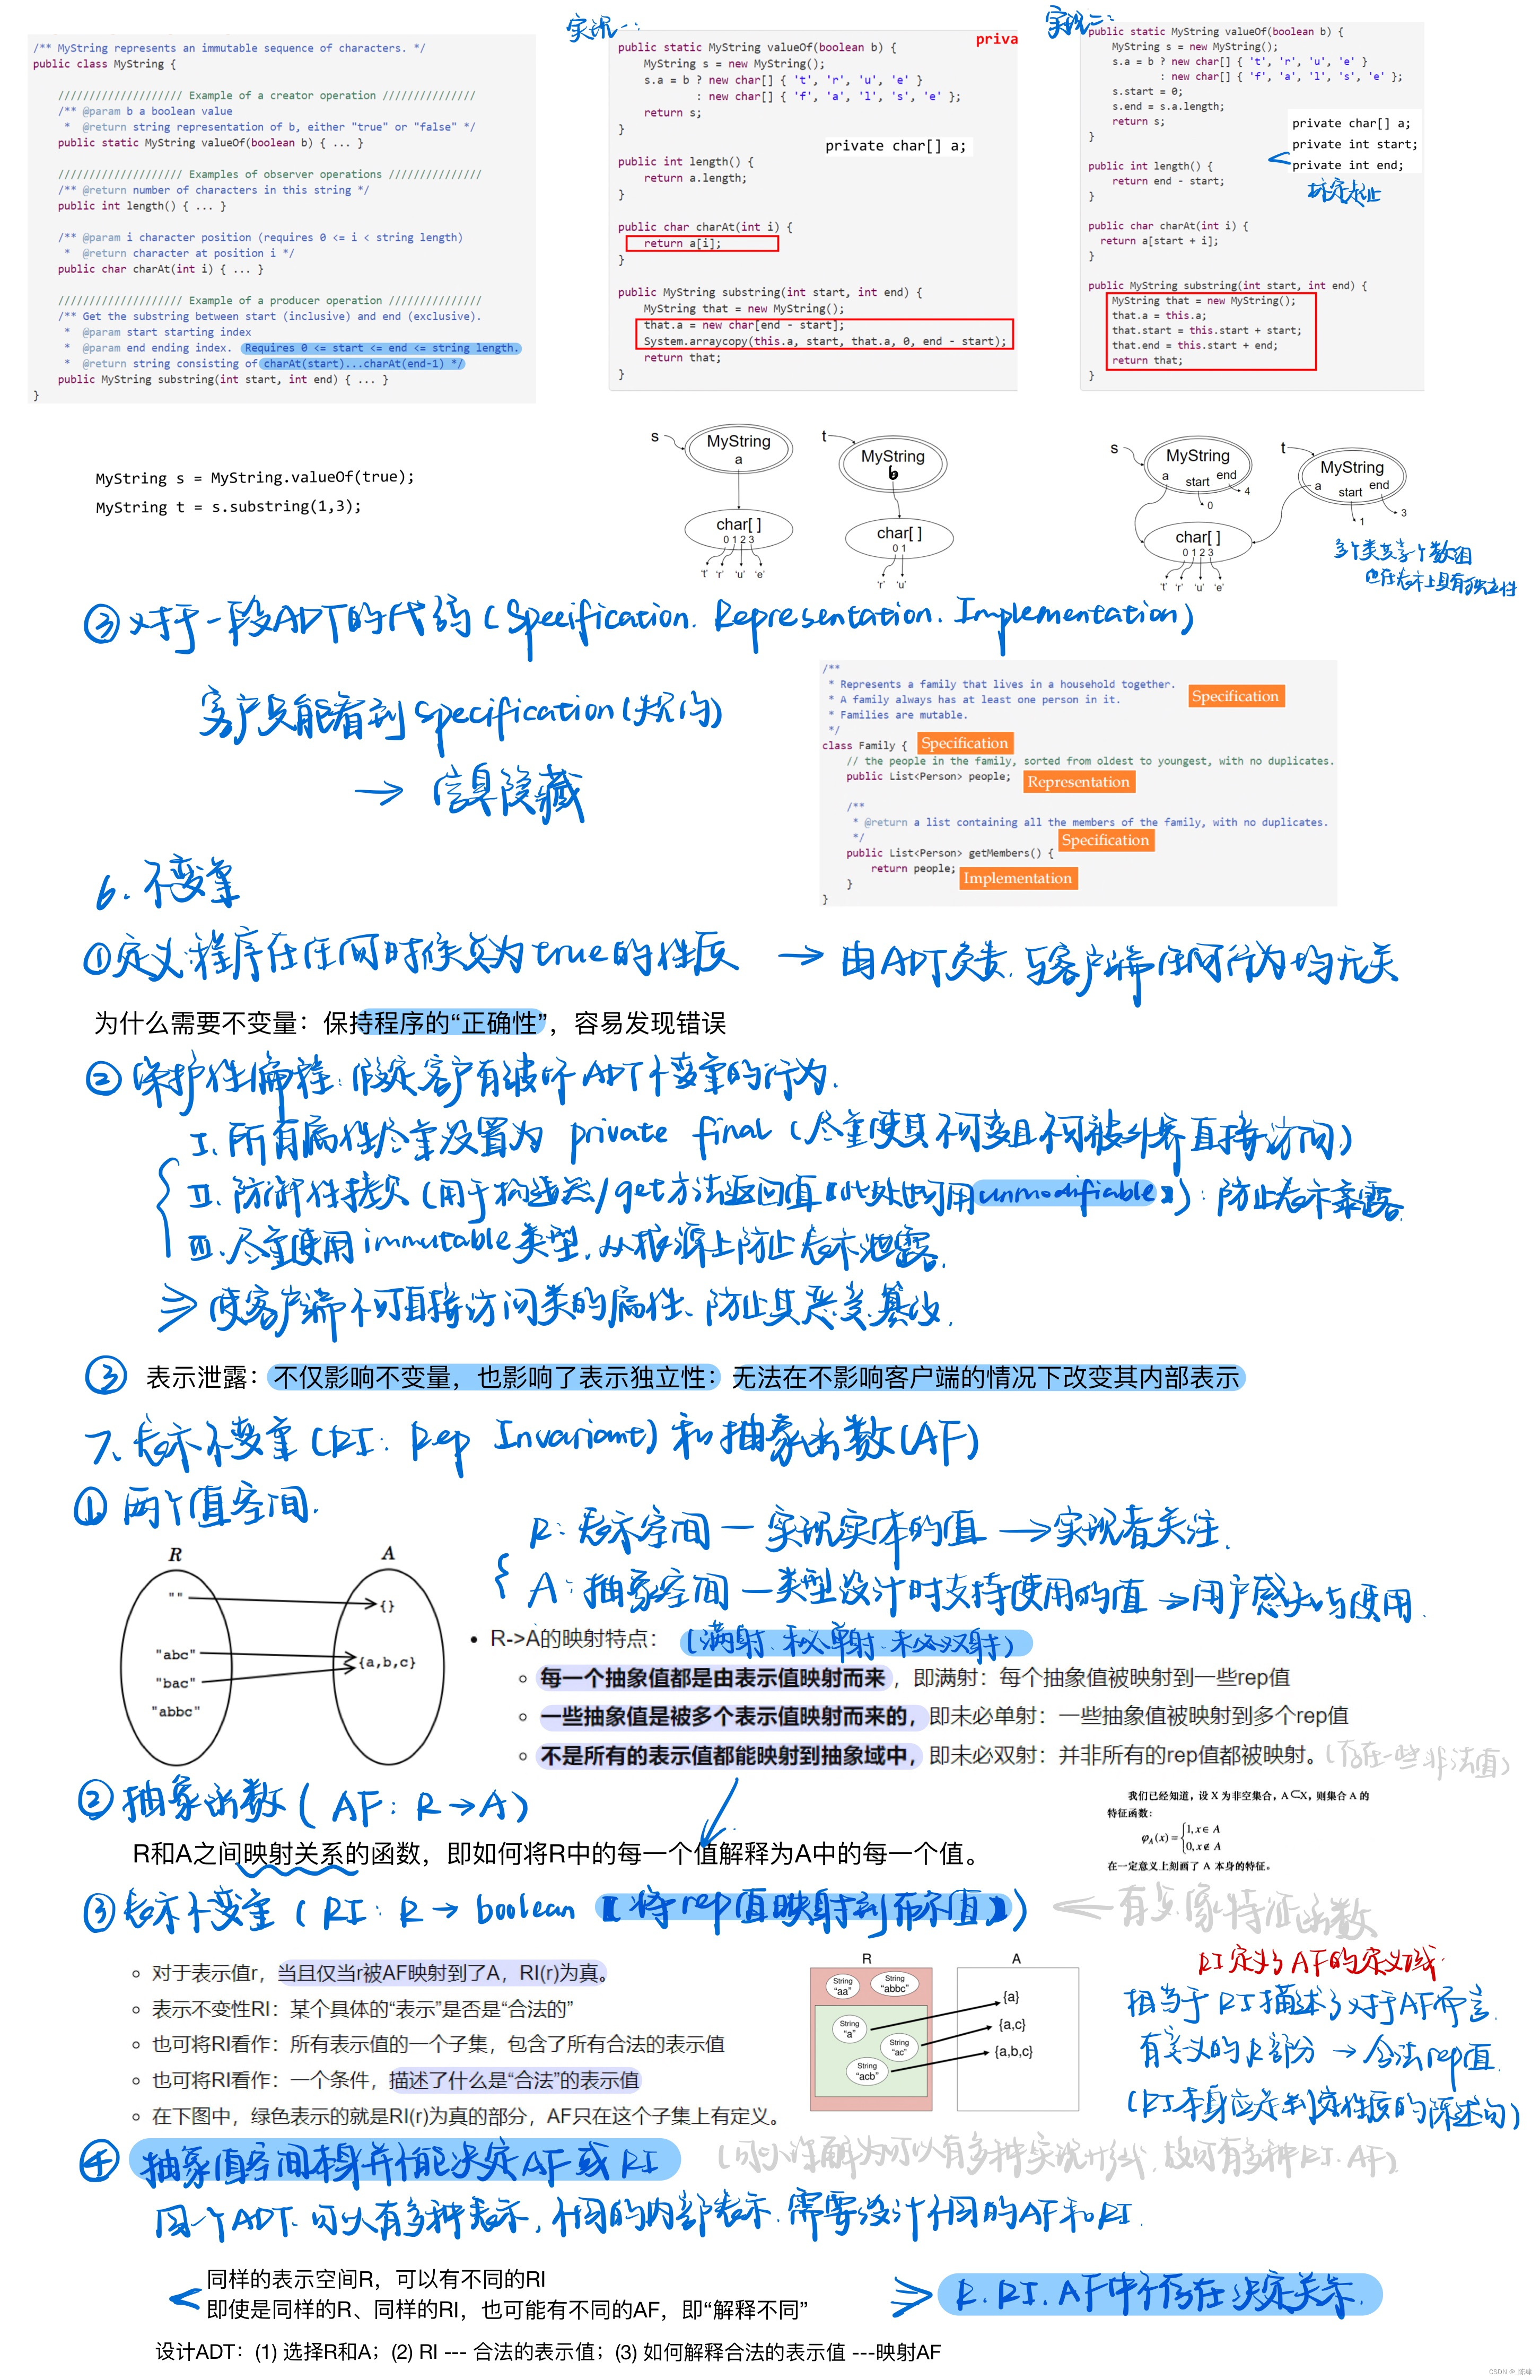 /** MyString represents an immutable sequence of characters. */
public class MyString {
//////////////////// Example of a creator operation ///////////////
/** @param b a boolean value
* @return string representation of b, either "true" or "false" */
public static MyString valueOf(boolean b) { ... }
//////////////////// Examples of observer operations ///////////////
/** @return number of characters in this string */
public int length() { ... }
/** @param i character position (requires 0 <= i < string length)
* @return character at position i */
public char charAt(int i) { ... }
//////////////////// Example of a producer operation ///////////////
/** Get the substring between start (inclusive) and end (exclusive).
* @param start starting index
* @param end ending index. Requires 0 <= start <= end <= string length.
* @return string consisting of charAt(start)...charAt(end-1) */
public MyString substring(int start, int end) { ... }
}
实现一:
public static MyString valueOf(boolean b) {
priva
MyString s = new MyString();
s.a = b ? new char[] { 't', 'r', 'u', 'e' }
: new char[] { 'f', 'a', 'l', 's', 'e' };
return s;
}
private char[] a;
public int length() {
return a.length;
}
public char charAt(int i) {
return a[i];
}
public MyString substring(int start, int end) {
MyString that = new MyString();
that.a = new char[end - start];
System.arraycopy(this.a, start, that.a, 0, end - start);
return that;
}
实现二:
public static MyString valueOf(boolean b) {
MyString s = new MyString();
s.a = b ? new char[] { 't', 'r', 'u', 'e' }
: new char[] { 'f', 'a', 'l', 's', 'e' };
s.start = 0;
s.end = s.a.length;
return s;
}
private char[] a;
private int start;
private int end;
public int length() {
return end - start;
}
public char charAt(int i) {
return a[start + i];
}
public MyString substring(int start, int end) {
MyString that = new MyString();
that.a = this.a;
that.start = this.start + start;
that.end = this.start + end;
return that;
}
MyString s = MyString.valueOf(true);
MyString t = s.substring(1,3);
s
MyString
a
char[ ]
0 1 2 3
't' 'r' 'u' 'e'
t
MyString
char[ ]
0 1
'r' 'u'
s
MyString
a start end
0
4
t
MyString
a start end
1
3
char[ ]
0 1 2 3
't' 'r' 'u' 'e'
多个类共享一个数组
但在表示上具有独立性
③ 对于一段ADT的代码(Specification. Representation. Implementation)
客户只能看到Specification(规约)
→ 信息隐藏
/**
* Represents a family that lives in a household together.
* A family always has at least one person in it.
* Families are mutable.
*/
Specification
class Family {
Specification
// the people in the family, sorted from oldest to youngest, with no duplicates.
public List<Person> people;
Representation
/**
* @return a list containing all the members of the family, with no duplicates.
*/
Specification
public List<Person> getMembers() {
return people;
Implementation
}
}
6. 不变量
① 定义:程序在任何时候总为true的性质 → 由ADT负责.与客户端任何行为均无关
为什么需要不变量：保持程序的“正确性”，容易发现错误
② 保护性编程:假定客户有破坏ADT不变量的行为.
I. 所有属性尽量设置为 private final (尽量使其不可变且不可被外界直接访问)
II. 防御性拷贝(用于构造器/get方法返回值【此处也可用unmodifiable】): 防止表示暴露.
III. 尽量使用immutable类型.从根源上防止表示泄露.
⇒ 使客户端不可直接访问类的属性、防止其恶意篡改.
③ 表示泄露：不仅影响不变量，也影响了表示独立性：无法在不影响客户端的情况下改变其内部表示
7. 表示不变量(RI: Rep Invariant)和抽象函数(AF)
① 两个值空间.
R
A
""
"abc"
"bac"
"abbc"
{}
{a,b,c}
R: 表示空间—实现实体的值 → 实现者关注.
A: 抽象空间—类型设计时支持使用的值 → 用户感知与使用.
• R->A的映射特点： (满射、未必单射、未必双射)
每一个抽象值都是由表示值映射而来，即满射：每个抽象值被映射到一些rep值
一些抽象值是被多个表示值映射而来的，即未必单射：一些抽象值被映射到多个rep值
不是所有的表示值都能映射到抽象域中，即未必双射：并非所有的rep值都被映射。(存在一些非法值)
② 抽象函数(AF: R→A)
R和A之间映射关系的函数，即如何将R中的每一个值解释为A中的每一个值。
我们已经知道，设 X 为非空集合，A⊂X，则集合 A 的
特征函数：
φA(x)={1, x∈A
0, x∉A
在一定意义上刻画了 A 本身的特征。
③ 表示不变量(RI: R→boolean【将rep值映射到布尔值】) ← 有点像特征函数
对于表示值r，当且仅当r被AF映射到了A，RI(r)为真。
表示不变性RI：某个具体的“表示”是否是“合法的”
也可将RI看作：所有表示值的一个子集，包含了所有合法的表示值
也可将RI看作：一个条件，描述了什么是“合法”的表示值
在下图中，绿色表示的就是RI(r)为真的部分，AF只在这个子集上有定义。
R
A
String "aa"
String "abbc"
String "a"
String "ac"
String "acb"
{a}
{a,c}
{a,b,c}
RI定义了AF的定义域.
相当于RI描述了对于AF而言.
有意义的R部分 → 合法rep值.
(RI本身应是判定性质的陈述句)
④ 抽象值空间本身并不能决定AF或RI (可以理解为可以有多种实现形式,故可有多种RI、AF)
同一个ADT、可以有多种表示, 不同的内部表示.需要设计不同的AF和RI.
同样的表示空间R，可以有不同的RI
即使是同样的R、同样的RI，也可能有不同的AF，即“解释不同”
⇒ R. RI. AF中不存在决定关系.
设计ADT：(1) 选择R和A；(2) RI --- 合法的表示值；(3) 如何解释合法的表示值 ---映射AF